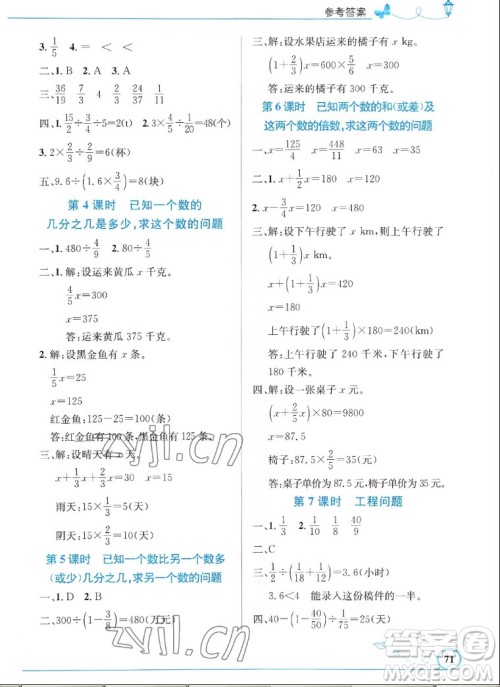 参考答案
3. 1/5 4. = < <
二、1. B 2. A
三、36/19 7/13 3/4 24/13
四、1. 15/2÷3/2=5(t) 2. 30×4/5÷1/2=48(个)
3. 2/3×2/2÷2/9=6(杯)
五、9.6÷(1.6×3/4)=8(块)
第 4 课时 已知一个数的
几分之几是多少,求这个数的问题
一、1. 480÷4/9 2. 90÷5/9
二、1. 解:设运来黄瓜 x 千克。
4/5x=300
x=375
答:运来黄瓜 375 千克。
2. 解:设黑金鱼有 x 条。
1/5x=25
x=125
红金鱼:125-25=100(条)
答:红金鱼有 100 条,黑金鱼有 125 条。
三、解:设晴天有 x 天。
x+1/3x+3/5x=30 x=15
雨天:15×1/3=5(天)
阴天:15×2/3=10(天)
第 5 课时 已知一个数比另一个数多
(或少)几分之几,求另一个数的问题
一、1. D 2. A
二、300÷(1-3/8)=480(万元)
三、解:设水果店运来的橘子有 x kg。
(1+1/3)x=600×5/6
x=300
答:运来的橘子有 300 千克。
第 6 课时 已知两个数的和(或差)及
这两个数的倍数,求这两个数的问题
一、x=125/4 x=448/11 x=63
二、1. x+1/3x=32
2. x-3/4x=42
三、解:设下午行驶了 x km,上午行驶了
(1+1/3)x km。
x+(1+1/3)x=420
x=180
上午行驶了(1+1/3)×180=240(千米)
答:上午行驶了 240 千米,下午行驶了
180 千米。
四、解:设一张桌子 x 元。
(x+2/5x)×80=9800
x=87.5
椅子:87.5×2/5=35(元)
答:桌子单价为 87.5 元,椅子单价为 35 元。
第 7 课时 工程问题
一、1. 1/3 2. 1/10 1/8 40/9
二、C
三、1÷(1/18+1/12×1/4)=3.6(小时)
3.6<4 能录入这份稿件的一半
四、(1-40/50)÷1/75=15(天)
71
zyjl.cn
zyjl.cn
答案圈
MXQE.COM